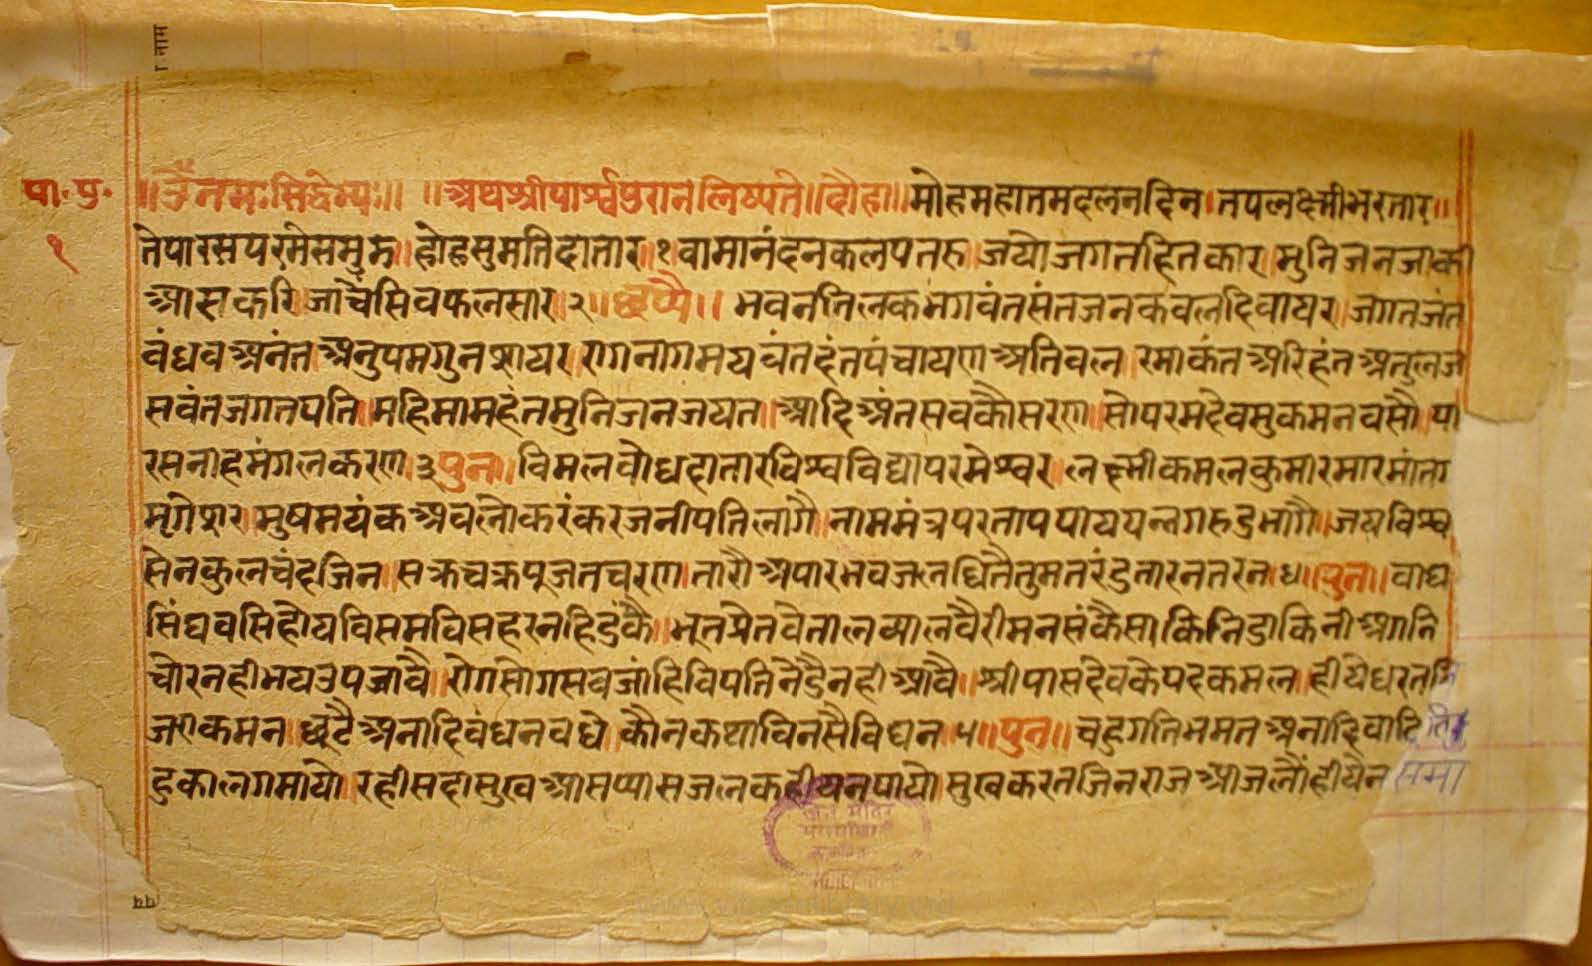 पा. पु.
१
॥ॐ नमः सिद्धेभ्यः॥ ॥अथ श्रीपार्श्वपुरान लिष्यते॥दोहा॥मोहमहातमदलनदिन।तपलक्ष्मीभरतार॥
तेपारसपरमेसमुझ।होहुसुमतिदातार॥१॥वामानंदनकलपतरु।जयोजगतहितकार।मुनिजनजाकी
आसकरि।जाचैसिवफलसार॥२॥छप्पै॥भवनतिलकभगवंतसंतजनकवलदिवायर।जगतजंत
वंधवअनंत।अनुपमगुनशायर।रागनागमयवंतदंतपंचायणअतिवल।रमाकंतअरिहंतअतुलज
सवंतजगतपति।महिमामहंतमुनिजनजयत।आदिअंतसवकौसरण।सोपरमदेवसुकमनवसौ।पा
रसनाहमंगलकरण।३पुनः।विमलवोधदातारविश्वविद्यापरमेश्वर।लक्ष्मीकमलकुमारमारमांतग
मृगेशर।मुषमयंकअवलोकरंकरजनीपतिलागै।नाममंत्रपरतापपाययन्लगरुडभागै।जयविश्व
सेनकुलचंदजिन।सक्रचक्रपूजतचरण।तारौअपारभवजलधितैतुमतरंडतारनतरन॥४॥पुनः॥वाघ
सिंघवसिहोयविसमविसहरनहिडंकै।भूतप्रेतवेतालव्यालवैरीमनसंकैसा।किनिडाकिनीअगनि
चोरनहीभयउपजावै।रोगसोगसवजांहिविपतिनेडैनहीआवै।श्रीपासदेवकेपदकमल।हीयेधरतनि
जएकमन।छूटैअनादिवंधनवधे।कौनकथाविनसैविघन॥५॥पुनः॥चहुगतिभमतअनादिवादि
हुकालगमायो।रहीसदासुखआसप्यासजलकहीयनपायो।सुखकरतजिनराजआजलौंहीयैन समा